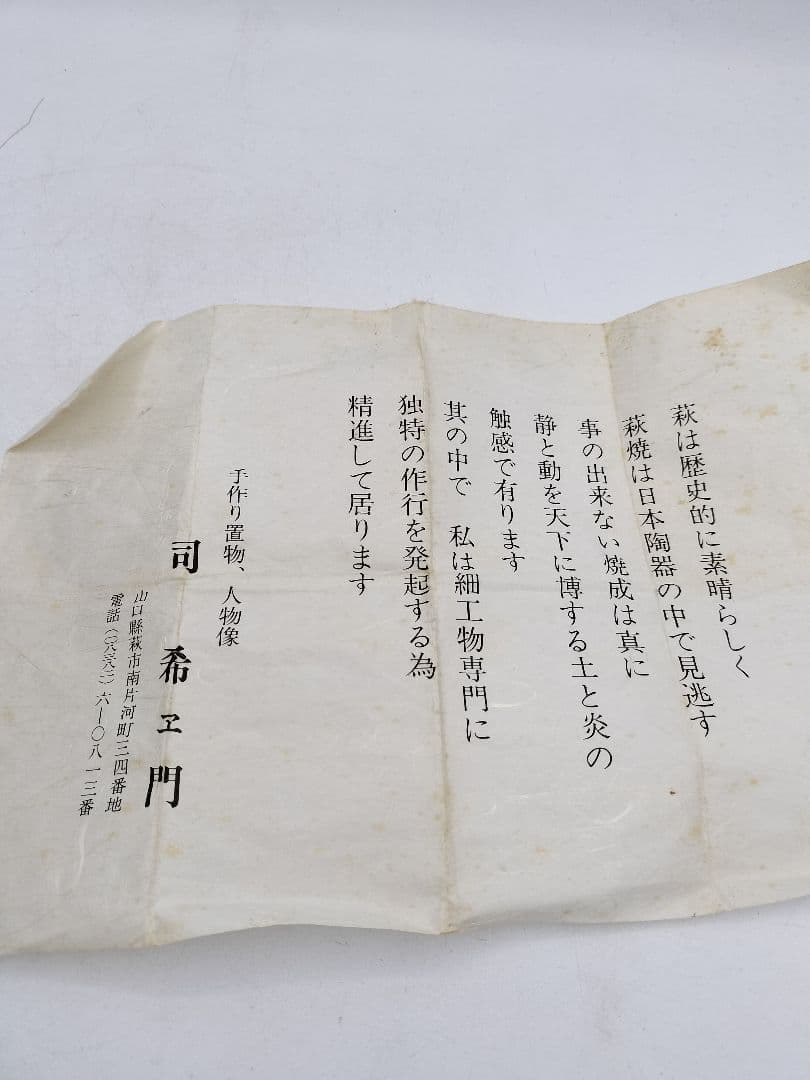 萩は歴史的に素晴らしく
萩焼は日本陶器の中で見逃す
事の出来ない焼成は真に
静と動を天下に博する土と炎の
触感で有ります
其の中で 私は細工物専門に
独特の作行を発起する為
精進して居ります
手作り置物、人物像
司 希ヱ門
山口縣萩市南片河町三四番地
電話(〇八三八二)六―〇八一三番